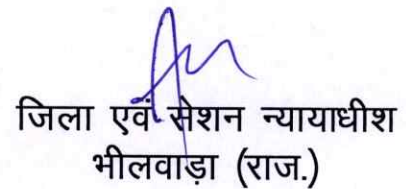 जिला एवं सेशन न्यायाधीश
भीलवाड़ा (राज.)